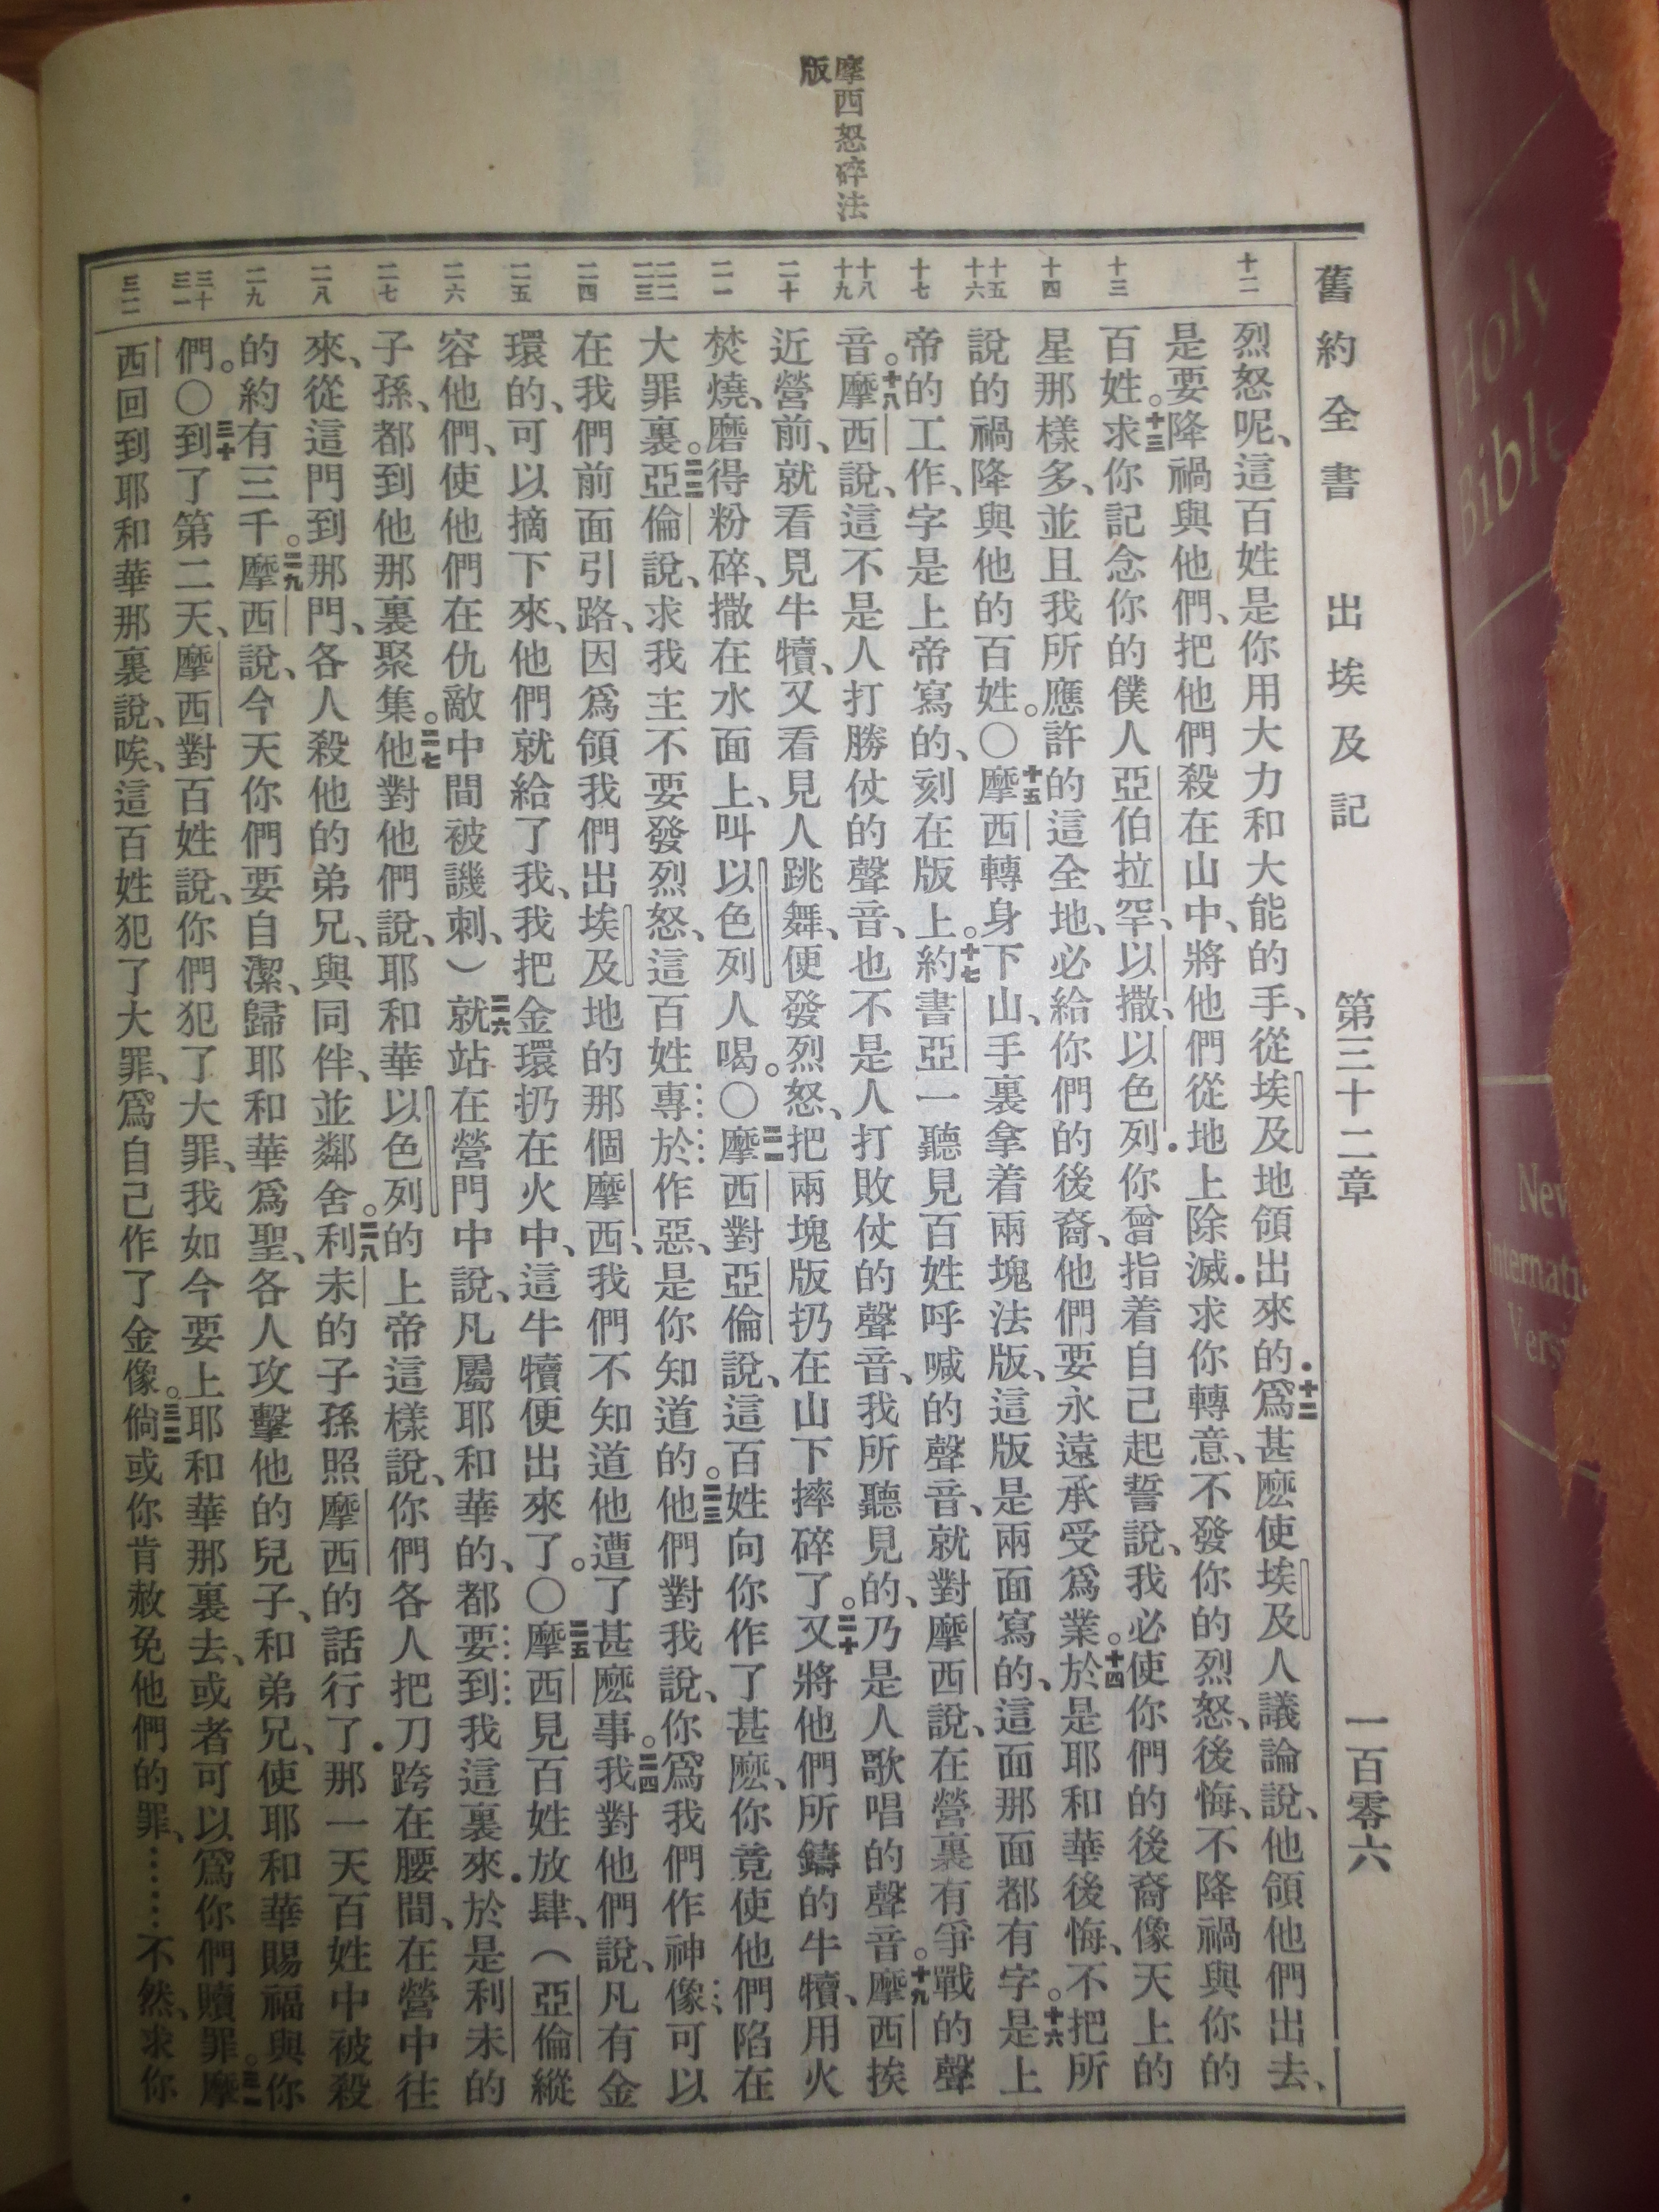 摩西怒碎法
版
舊約全書 出埃及記 第三十二章 一百零六
十二 十三 十四 十五 十六 十七 十八 十九 二十 二一 二二 二三 二四 二五 二六 二七 二八 二九 三十 三一 三二
烈怒呢、這百姓是你用大力和大能的手、從埃及地領出來的．十二爲甚麽使埃及人議論說、他領他們出去、
是要降禍與他們、把他們殺在山中、將他們從地上除滅．求你轉意、不發你的烈怒、後悔、不降禍與你的
百姓。十三求你記念你的僕人亞伯拉罕、以撒、以色列．你曾指着自己起誓說、我必使你們的後裔像天上的
星那樣多、並且我所應許的這全地、必給你們的後裔、他們要永遠承受爲業。十四於是耶和華後悔、不把所
說的禍降與他的百姓。〇十五摩西轉身下山、手裏拿着兩塊法版、這版是兩面寫的、這面那面都有字。十六是上
帝的工作、字是上帝寫的、刻在版上。十七約書亞一聽見百姓呼喊的聲音、就對摩西說、在營裏有爭戰的聲
音。十八摩西說、這不是人打勝仗的聲音、也不是人打敗仗的聲音、我所聽見的、乃是人歌唱的聲音。十九摩西挨
近營前、就看見牛犢、又看見人跳舞、便發烈怒、把兩塊版扔在山下摔碎了。二十又將他們所鑄的牛犢、用火
焚燒、磨得粉碎、撒在水面上、叫以色列人喝。〇二一摩西對亞倫說、這百姓向你作了甚麽、你竟使他們陷在
大罪裏。二二亞倫說、求我主不要發烈怒、這百姓專於作惡、是你知道的。二三他們對我說、你爲我們作神像、可以
在我們前面引路、因爲領我們出埃及地的那個摩西、我們不知道他遭了甚麽事。二四我對他們說、凡有金
環的、可以摘下來、他們就給了我、我把金環扔在火中、這牛犢便出來了。〇二五摩西見百姓放肆、（亞倫縱
容他們、使他們在仇敵中間被譏刺、）二六就站在營門中說、凡屬耶和華的、都要到我這裏來．於是利未的
子孫、都到他那裏聚集。二七他對他們說、耶和華以色列的上帝這樣說、你們各人把刀跨在腰間、在營中往
來、從這門到那門、各人殺他的弟兄、與同伴、並鄰舍。二八利未的子孫照摩西的話行了．那一天百姓中被殺
的約有三千。二九摩西說、今天你們要自潔、歸耶和華爲聖、各人攻擊他的兒子、和弟兄、使耶和華賜福與你
們。〇三十到了第二天、摩西對百姓說、你們犯了大罪、我如今要上耶和華那裏去、或者可以爲你們贖罪。三一摩
西回到耶和華那裏說、唉、這百姓犯了大罪、爲自己作了金像。三二倘或你肯赦免他們的罪、……不然、求你
Holy
Bible
New
Internati
Versi